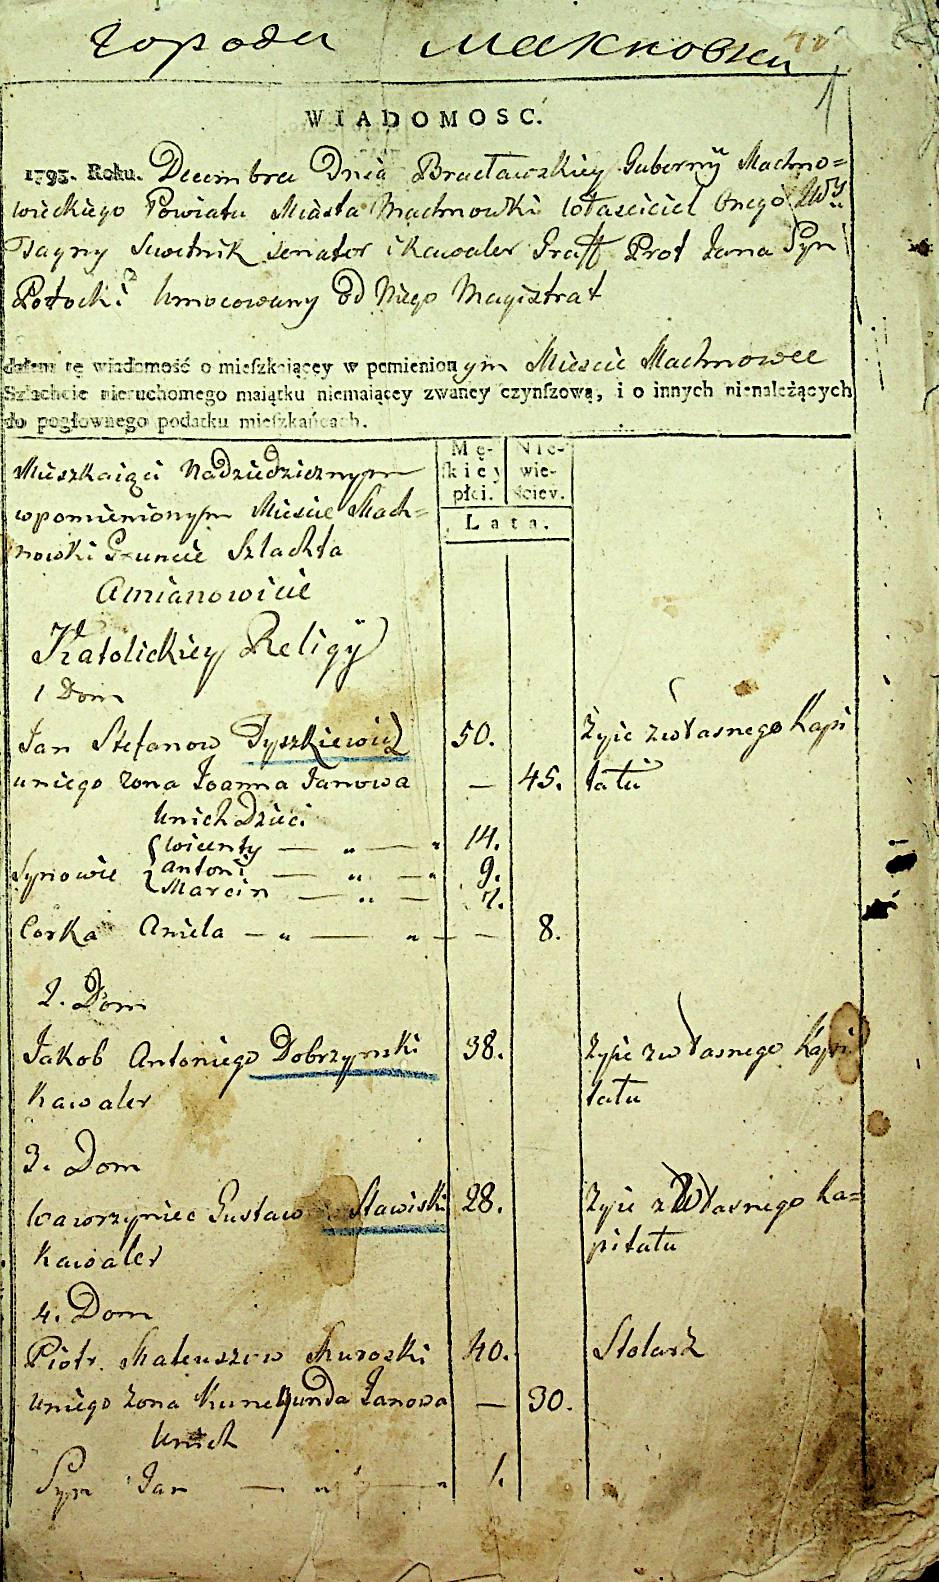 города Махновки
WIADOMOSC.
1795. Roku. Decembra Dnia Bracławskiey Gubernÿ Machno=
wieckiego Powiatu Miasta Machnowki Własciciel Onego
Tayny Sowetnik Senator i Kawaler Graff Prot Jana Syn
Potocki Umocowany Od Niego Magistrat
daiem tę wiadomość o mieſzkaiącey w pomienionym Miescie Machnowce
Szlachcie nieruchomego maiątku niemaiącey zwaney czynſzową, i o innych nienależących
do pogłownego podatku mieſzkańcach.
Mieszkaiąci Nadziedzicznym
w pomienionym Miescie Mach=
nowki Gruncie Szlachta
Amianowicie
Katolickiey Religÿ
Mę-
ſkiey
płci.
Nie-
wie-
ściey.
Lata.
1 Dom
Jan Stefanow Tyszkiewicz 50. Zyie zwłasnego Kapi
uniego zona Joanna Janowa — 45. tału
Unich Dzieci
Wicenty — „ — „ 14.
Synowie Antoni — „ — „ 9.
Marcin — „ — 7.
Corka Aniela — „ — „ — — 8.
2. Dom
Jakob Antoniego Dobrzynski 38. Zyie zwłasnego Kapi
Kawaler tału
3. Dom
Wawrzyniec Gustaw Stawiski 28. Zyie zWłasnego Ka=
Kawaler pitału
4. Dom
Piotr Mateuszow Muroski 40. Stolarz
Uniego Zona Kunegunda Janowa — 30.
Unich
Syn Jan — „ — „ 1.